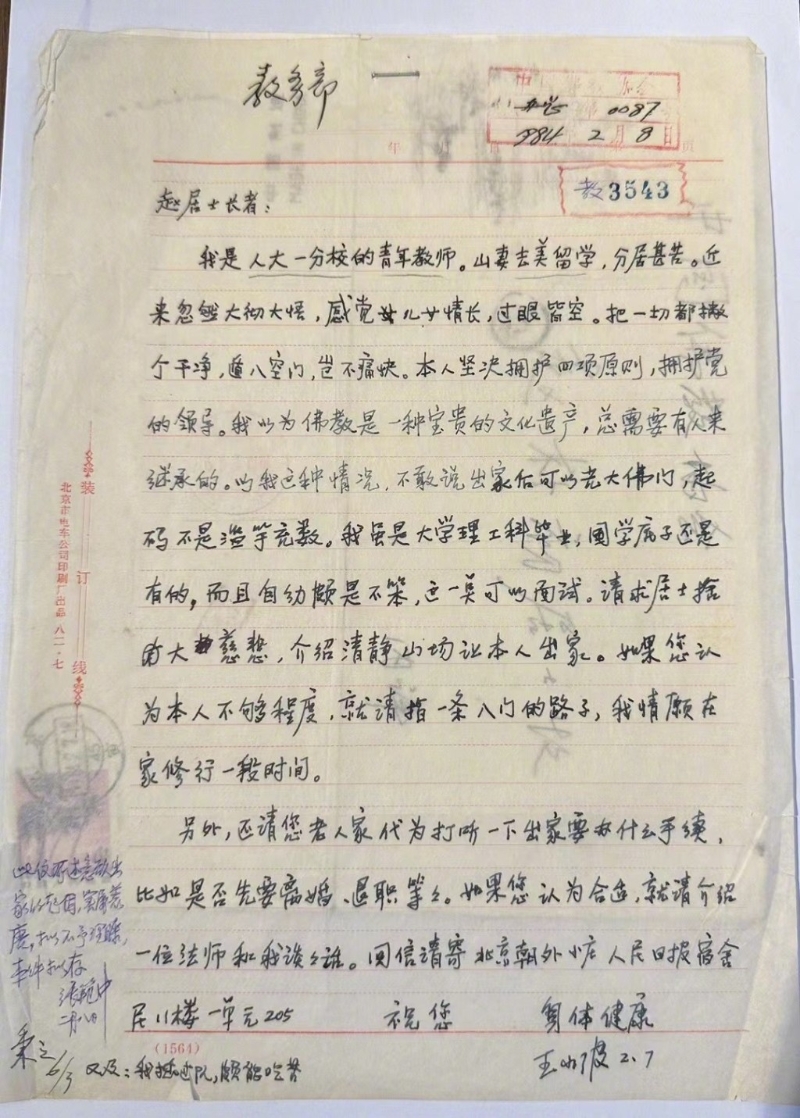 教务部
0087
1984 2月8日
年
教3543
赵居士长者：
我是人大一分校的青年教师。山妻去美留学，分居甚苦。近
来忽然大彻大悟，感觉儿女情长，过眼皆空。把一切都撇
个干净，遁入空门，岂不痛快。本人坚决拥护四项原则，拥护党
的领导。我以为佛教是一种宝贵的文化遗产，总需要有人来
继承的。以我这种情况，不敢说出家后可以光大佛门，起
码不是滥竽充数。我虽是大学理工科毕业，国学底子还是
有的，而且自幼颇是不笨，这一点可以面试。请求居士捨
大慈悲，介绍清静山场让本人出家。如果您认
为本人不够程度，就请指一条入门的路子，我情愿在
家修行一段时间。
另外，还请您老人家代为打听一下出家要办什么手续，
比如是否先要离婚、退职等々。如果您认为合适，就请介绍
一位法师和我谈々谁。回信请寄北京朝外小庄人民日报宿舍
民11楼一单元205 祝您 身体健康
王小波 2.7
(1564)
又及：我插过队，颇能吃苦
装订线
北京市电车公司印刷厂出品 八二·七
此信所述意欲出
家的起因，实属荒
度，拟不予理睬，
来件拟存
二月八日
6/3